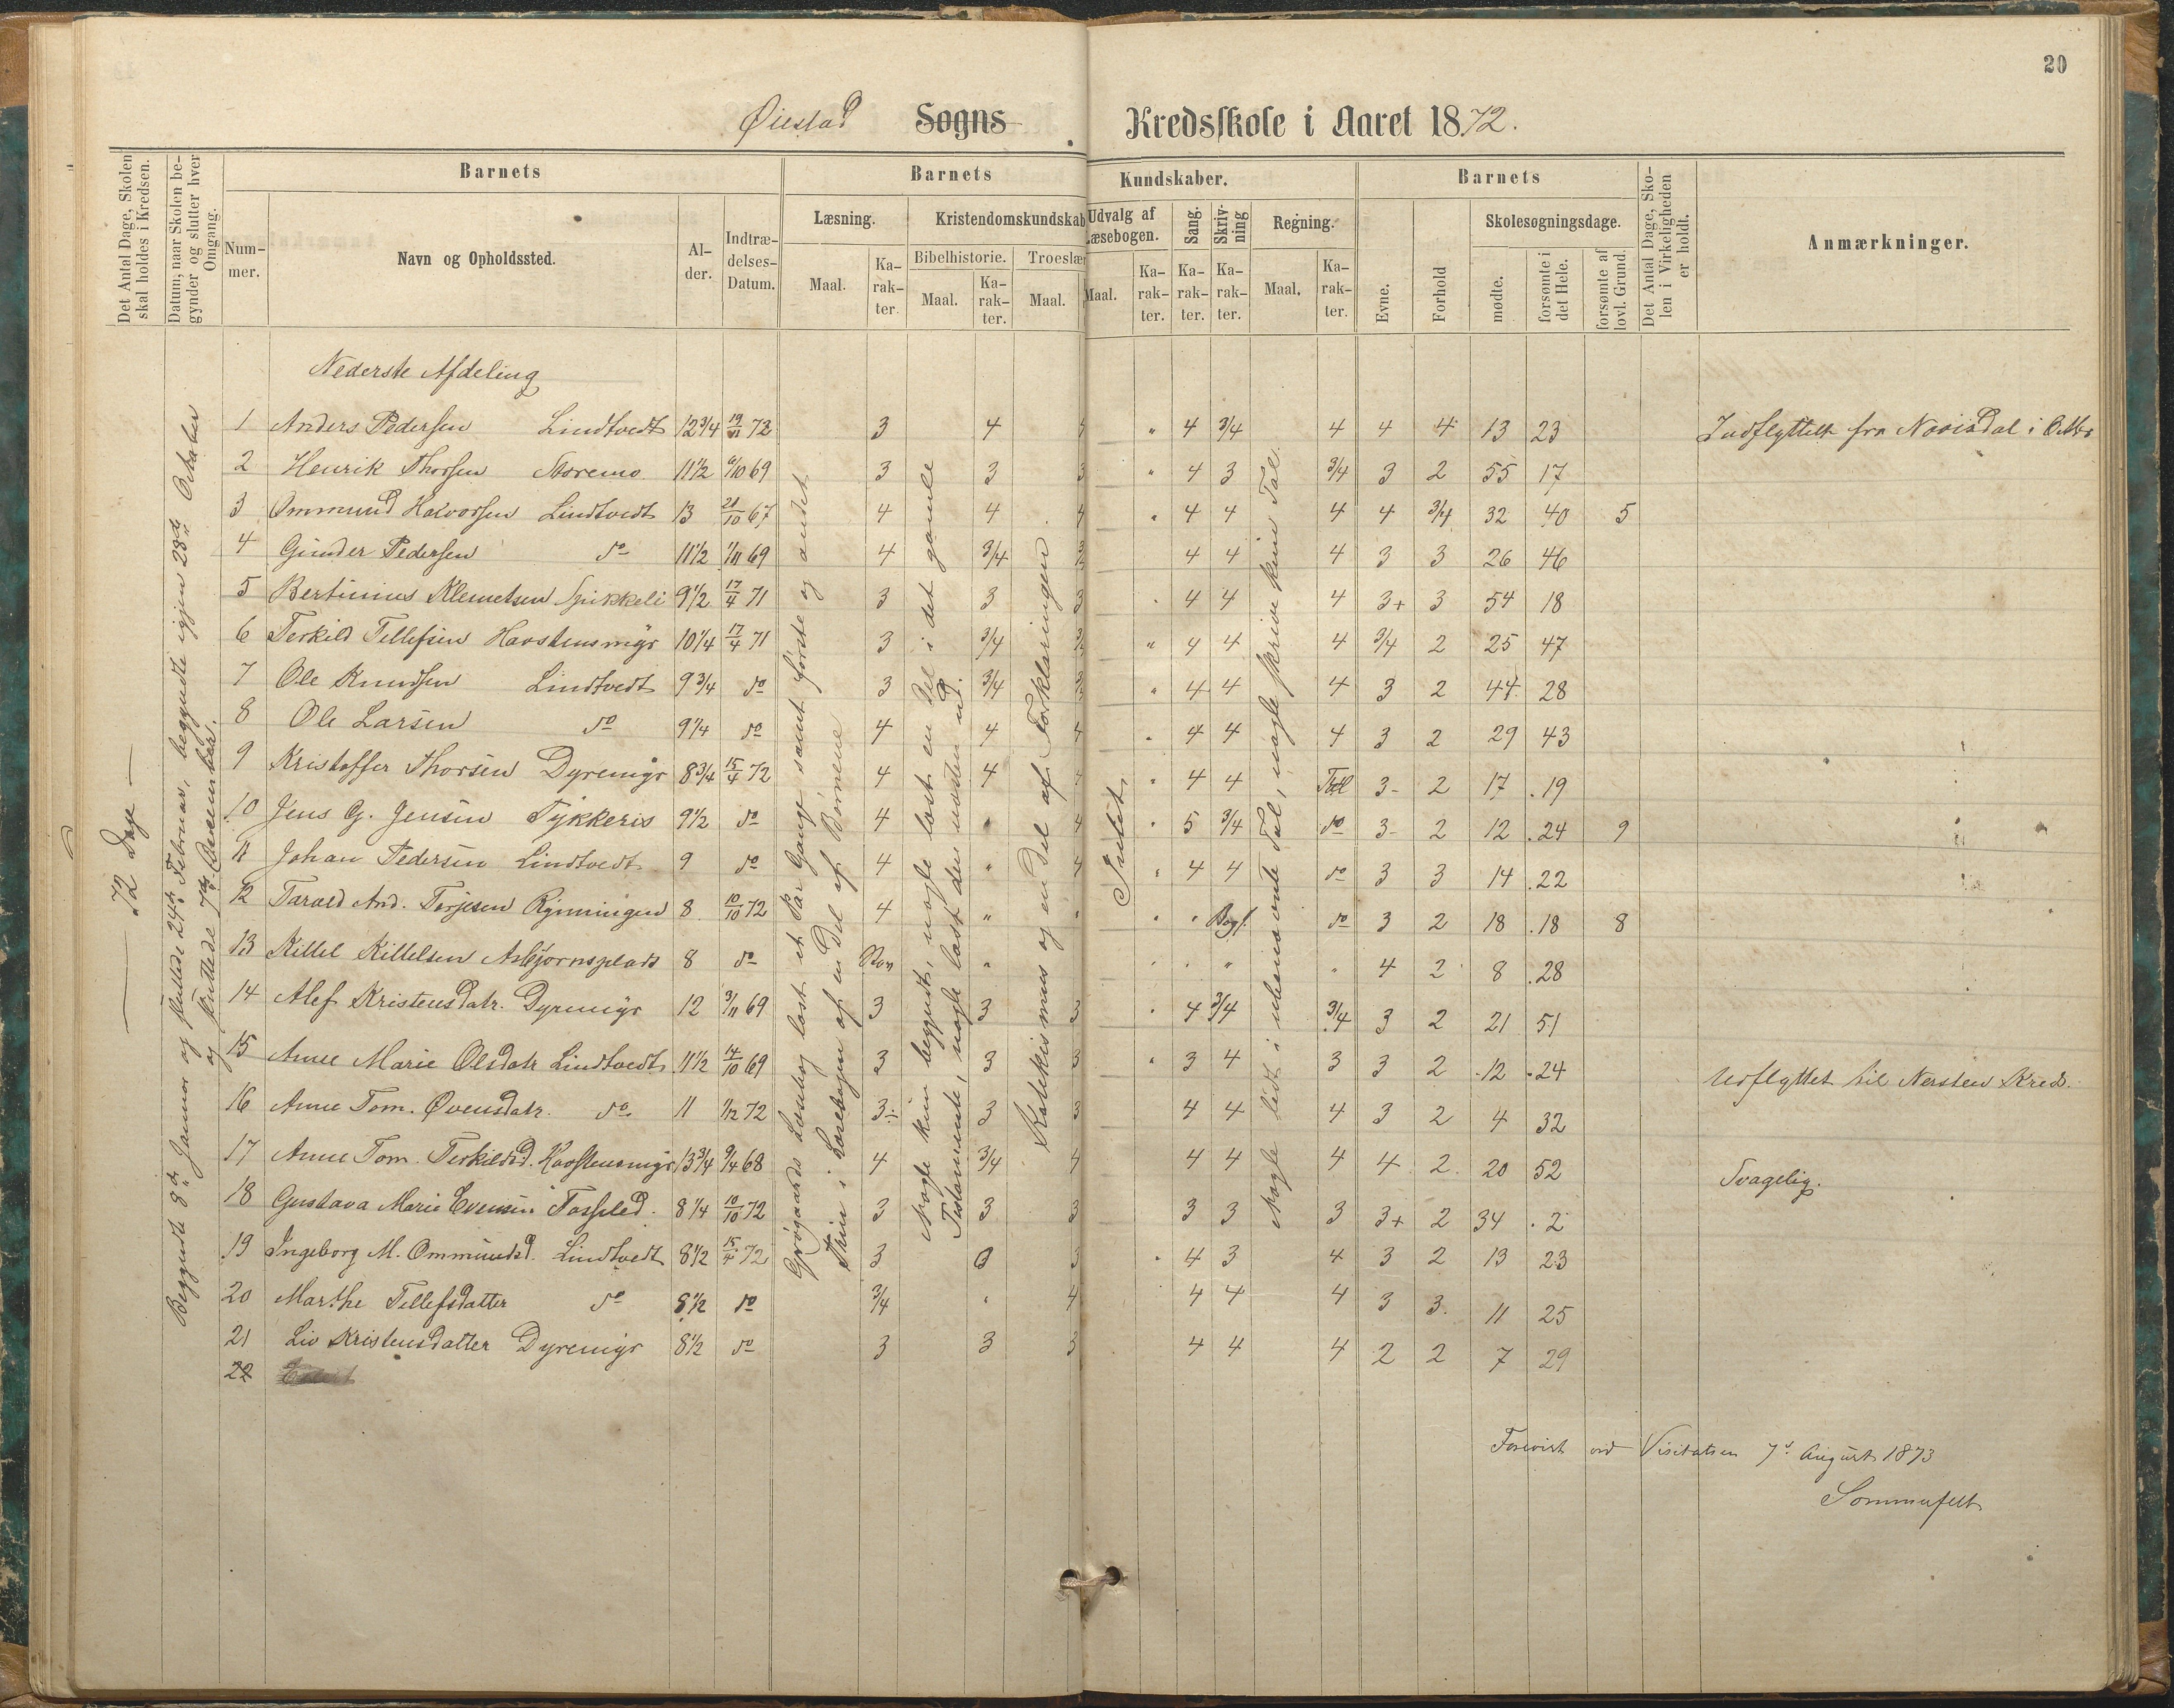 20
Øiestad Sogns Kredsskole i Aaret 1872.
Det Antal Dage, Skolen skal holdes i Kredsen.
Datum, naar Skolen begynder og slutter hver Omgang.
Barnets
Nummer.
Navn og Opholdssted.
Alder.
Indtrædelses-Datum.
Barnets Kundskaber.
Læsning.
Maal.
Karakter.
Kristendomskundskab
Bibelhistorie.
Maal.
Karakter.
Troeslær
Maal.
Udvalg af Læsebogen.
Maal.
Karakter.
Sang.
Karakter.
Skrivning
Karakter.
Regning.
Maal.
Karakter.
Barnets
Evne.
Forhold
Skolesøgningsdage.
mødte.
forsømte i det Hele.
forsømte af lovl. Grund.
Det Antal Dage, Skolen i Virkeligheden er holdt.
Anmærkninger.
72 Dage
Begyndte 8de Januar og sluttede 24de Februar, begyndte igjen 28de Oktober
og sluttede 7de December.
Grøgaards Læsebog læst et Par Gange samt første og andet
Trin i Læsebogen af en Del af Børnene
Nogle kun begyndt, nogle læst en Del i det gamle
Testamente, nogle læst den næsten ud.
Katekismus og en Del af Forklaringen
Intet
Nogle lidt i ubenævnte Tal, nogle skrive kun Tal.
Nederste Afdeling
1 Anders Pedersen Lindtvedt 12 3/4 19/11 72 3 4 4 " 4 3/4 4 4 4 13 23 Indflyttet fra Novisdal i Oktbr
2 Henrik Thorsen Noremo 11 1/2 6/10 69 3 3 3 " 4 3 3/4 3 2 55 17
3 Ommund Halvorsen Lindtvedt 13 21/10 67 4 4 4 " 4 4 4 4 3/4 32 40 5
4 Gunder Pedersen do 11 1/2 1/11 69 4 3/4 3/4 4 4 4 3 3 26 46
5 Bertinius Klemetsen Spikkeli 9 1/2 17/4 71 3 3 3 4 4 4 3+ 3 54 18
6 Terkild Tellefsen Havstensmyr 10 1/4 17/4 71 3 3/4 3/4 " 4 4 4 3/4 2 25 47
7 Ole Knudsen Lindtvedt 9 3/4 do 3 3/4 " 4 4 4 3 2 44 28
8 Ole Larsen do 9 1/4 do 4 4 4 " 4 4 4 3 2 29 43
9 Kristoffer Thorsen Dyremyr 8 3/4 15/4 72 4 4 4 " 4 4 Tal 3- 2 17 19
10 Jens G. Jensen Tykkeris 9 1/2 do 4 " 4 " 5 3/4 do 3- 2 12 24 9
11 Johan Pedersen Lindtvedt 9 do 4 " 4 " 4 4 do 3 3 14 22
12 Tarald And. Terjesen Rynningen 8 10/10 72 4 " " " " Bogst. do 3 2 18 18 8
13 Kittel Kittelsen Asbjørnsplads 8 do " " " " 4 2 8 28
14 Alef Kristensdatr. Dyremyr 12 3/11 69 3 3 3 " 4 3/4 3/4 3 2 21 51
15 Anne Marie Olsdatr Lindtvedt 11 1/2 14/10 69 3 3 3 " 3 4 3 3 2 12 24 Udflyttet til Nersten Kreds.
16 Anne Tom. Øvensdatr. do 11 1/12 72 3÷ 3 3 4 4 4 3 2 4 32
17 Anne Tom. Terkildsd. Havstensmyr 13 3/4 9/4 68 4 3/4 4 4 4 4 4 2 20 52 Svagelig.
18 Gustava Marie Evensen Fosseled 8 1/4 10/10 72 3 3 3 3 3 3 3+ 2 34 2
19 Ingeborg M. Ommundsd. Lindtvedt 8 1/2 15/4 72 3 3 3 " 4 3 4 3 2 13 23
20 Marthe Tellefsdatter do 8 1/2 do 3/4 " 4 4 4 4 3 3 11 25
21 Liv Kristensdatter Dyremyr 8 1/2 do 3 3 3 4 4 4 2 2 7 29
22
Forevist ved Visitatsen 7de August 1873
Sommerfelt